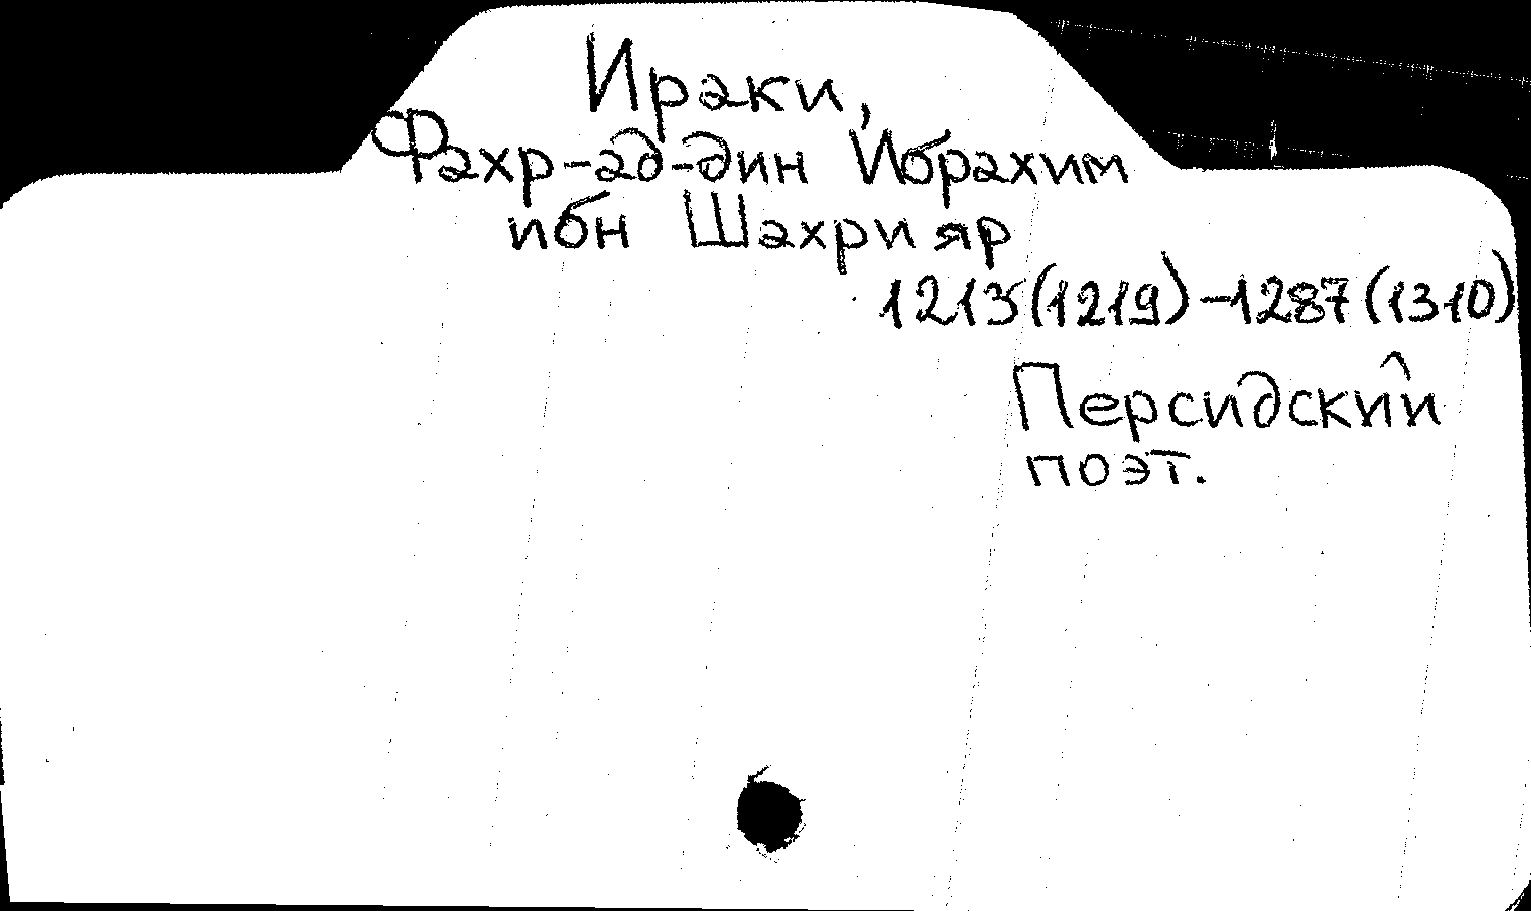 Ираки,
Фахр-ад-дин Ибрахим
ибн Шахрияр
1213(1219)-1287(1310)
Персидский
поэт.